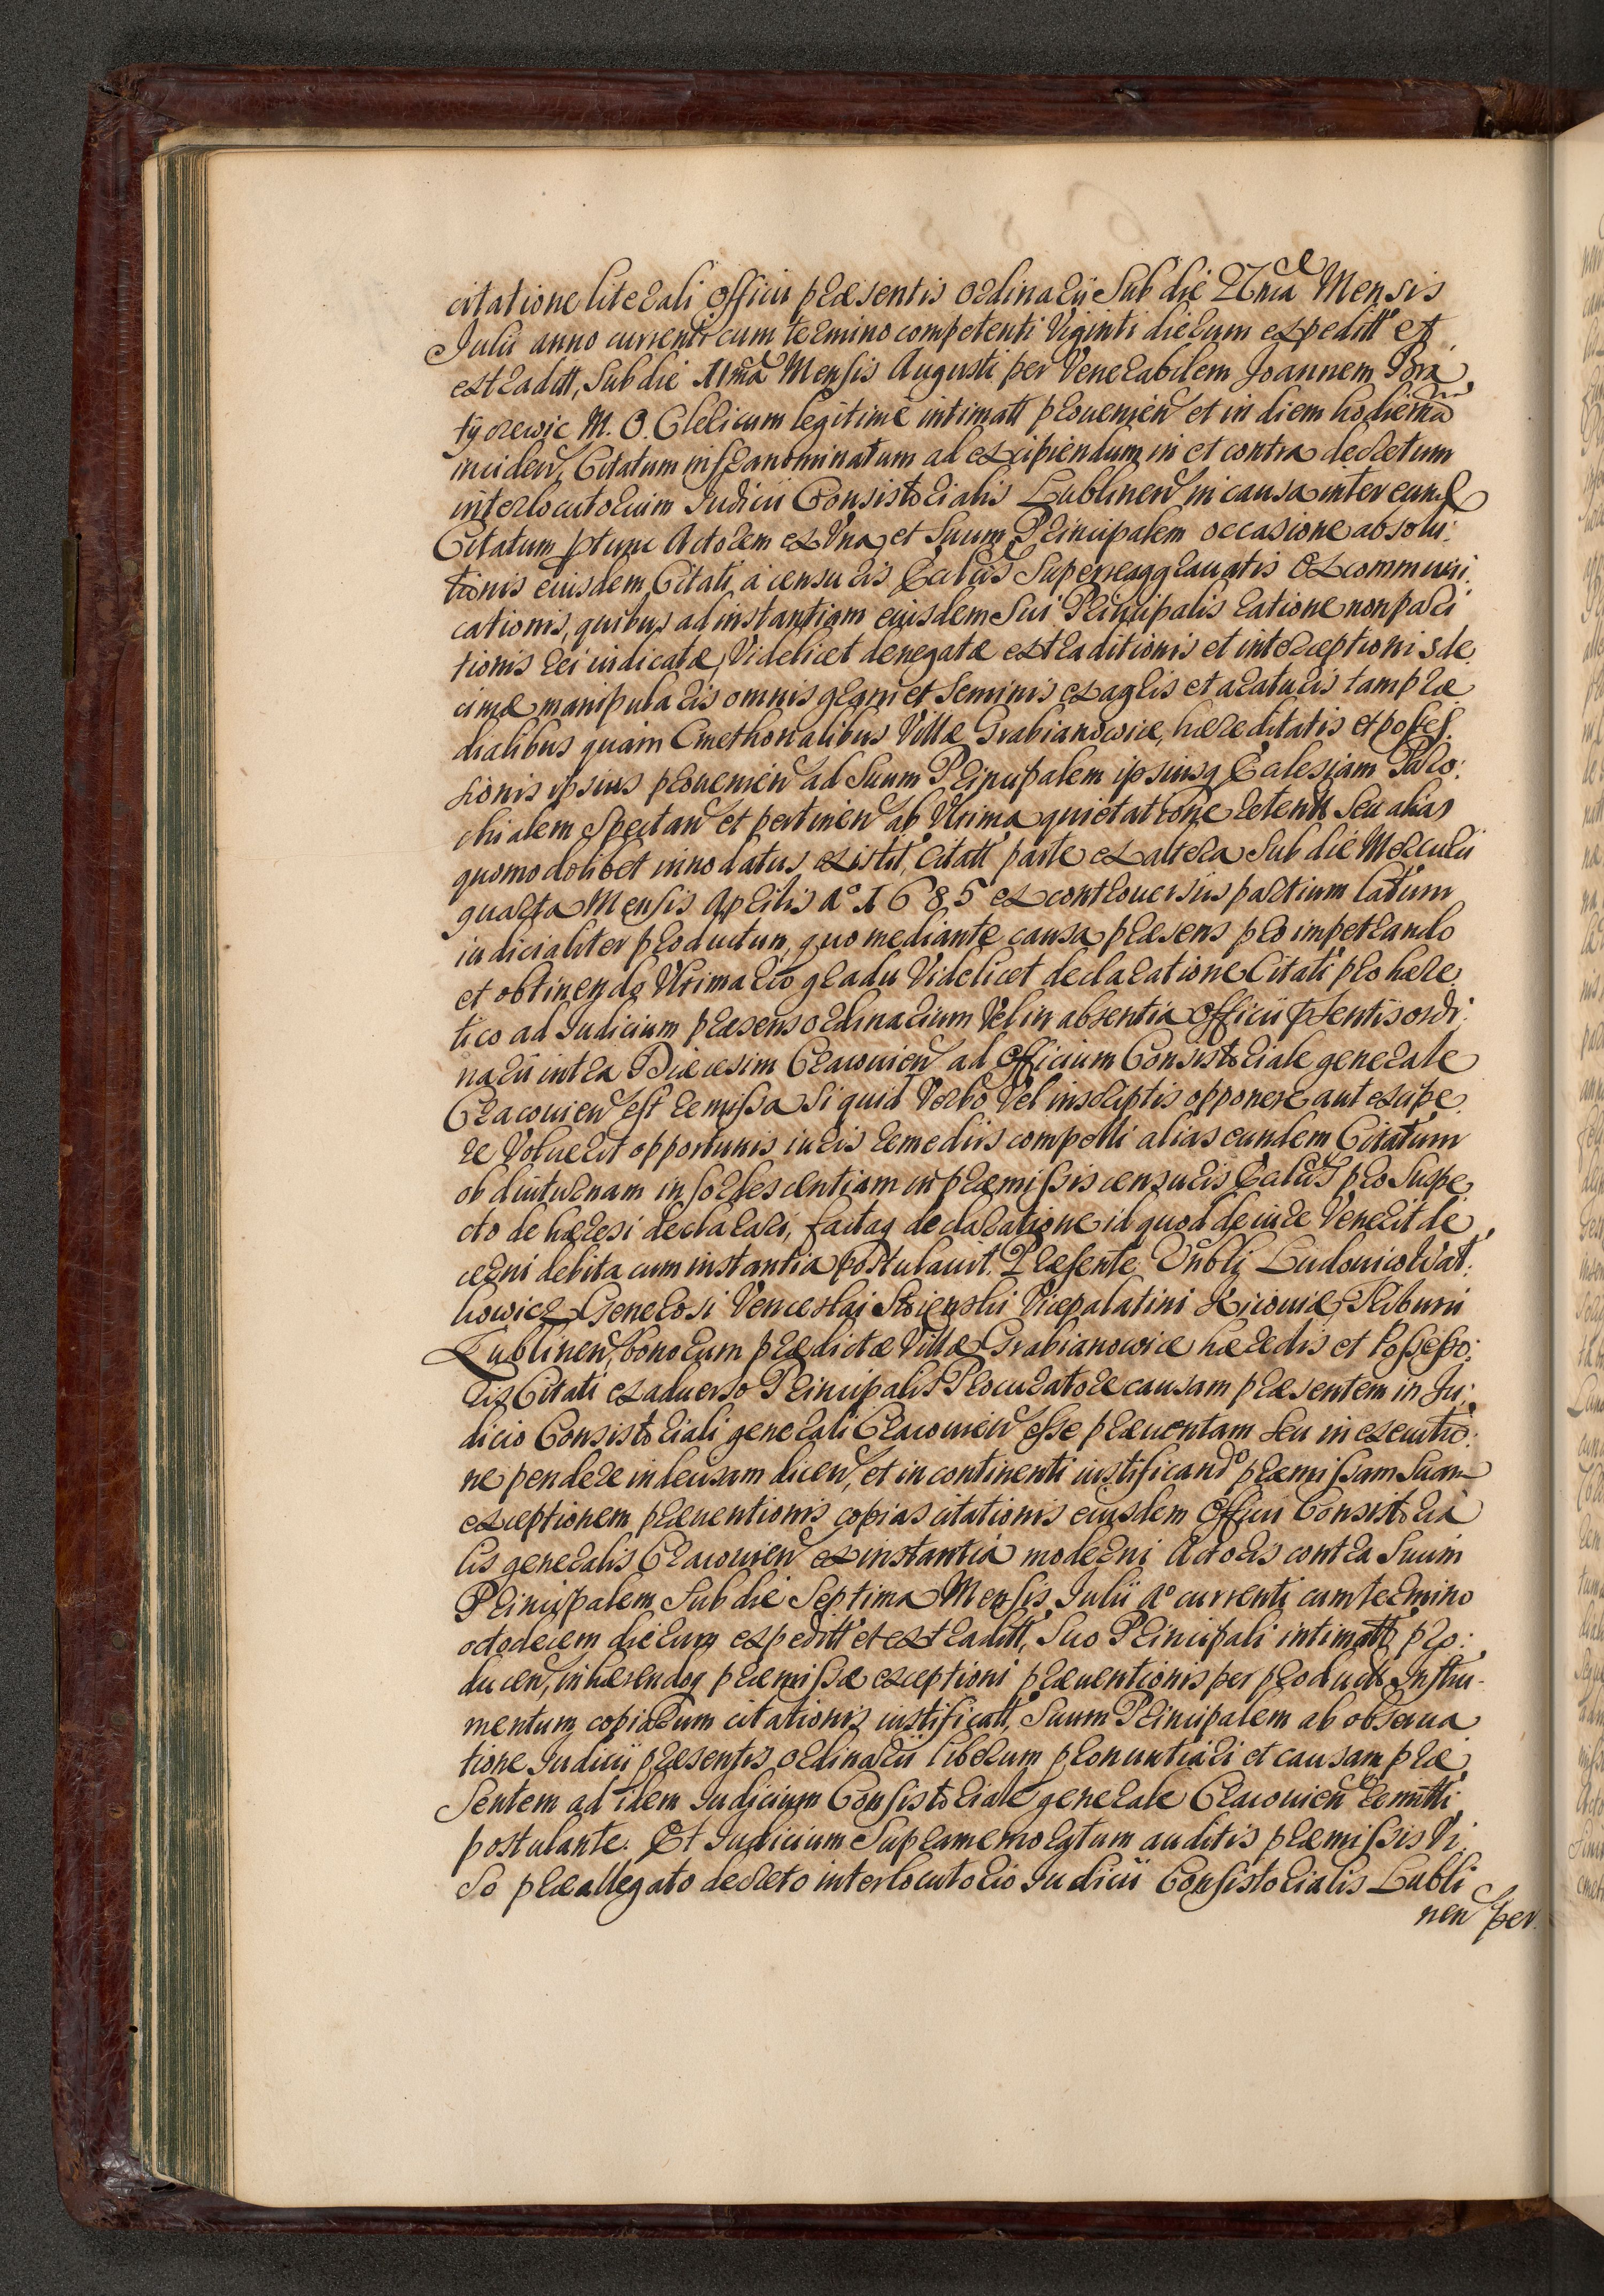 citatione literali Officii præsentis ordinarii Sub die 27ma Mensis
Julii anno currenti cum termino competenti Viginti dierum expeditt et
extraditt, Sub die 11ma Mensis Augusti per Venerabilem Joannem
M. O. Clericum legitime intimatt prouenien et in diem hodiernã
inciden, Citatum infranominatum ad excipiendum in et contra decretum
interlocutorium Judicii Consistorialis Lublinen in causa inter eund
Citatum ptunc Actorem ex Vna, et Suum Principalem occasione absolu:
tionis eiusdem Citati a censuris Ecclticis Superreaggrauatis Excommuni
cationis, quibus ad instantiam eiusdem Sui Principalis ratione non pari
tionis rei iudicatæ, Videlicet denegatæ extraditionis et interceptionis de
cimæ manipularis omnis grani et Seminis ex agris et araturis tam præ
dialibus quam Cmethonalibus Villæ Grabianowice, hæreditatis et posses
sionis ipsius prouenien ad Suum Principalem ipsiusq Ecclesiam Paro:
chialem Spectan et pertinen ab Vltima quietatione retentt Seu alias
quomodolibet innodatus existit, Citatt parte ex altera Sub die Mercurii
quarta Mensis Aprilis Ao 1685 ex controuersiis partium latum
iudicialiter productum, quo mediante causa præsens pro impetrando
et obtinendo Vltimario gradu Videlicet declaratione Citati pro hære
tico ad Judicium præsens ordinarium Vel in absentia Officii psentis ordi:
narii intra Diæcesim Cracouien ad Officium Consistoriale generale
Cracouien est remissa Si quid Verbo Vel inscriptis opponere aut excipe
re Voluerit opportunis iuris remediis compelli alias eundem Citatum
ob diuturnam insordescentiam in præmissis censuris Ecclticis pro Suspe
cto de hæresi declarari, factaq declaratione id quod de iure Venerit de
cerni debita cum instantia postulauit. Præsente Vnbli Ludouico Wat:
kowicz Generosi Venceslai Stoienski Vicepalatini Kiiouiæ, Tribuni
Lublinen, bonorum prædictæ Villæ Grabianowice hæredis et Possesso:
ris Citati ex aduerso Principalis Procuratore causam præsentem in Ju:
dicio Consistoriali generali Cracouien esse præuentam seu in executio:
ne pendere indecisam dicen, et in continenti iustificando præmissam Suam
exceptionem præuentionis copias citationis eiusdem Officii Consistoria
lis generalis Cracouien ex instantia moderni Actoris contra Suum
Principalem Sub die Septima Mensis Julii Ao currenti cum termino
octodecem dierum expeditt et extraditt, Suo Principali intimatt pro:
ducen, inhærendoq præmissæ exceptioni præuentionis per productt Instru-
mentum copiarum citationis iustificatt, Suum Principalem ab obserua
tione Judicii præsentis ordinarii liberum pronuntiari et causam præ
sentem ad idem Judicium Consistoriale generale Cracouien remitti
postulante. Et Judicium Supramemoratum auditis præmissis Vi
So præallegato decreto interlocutorio Judicii Consistorialis Lubli
nen per